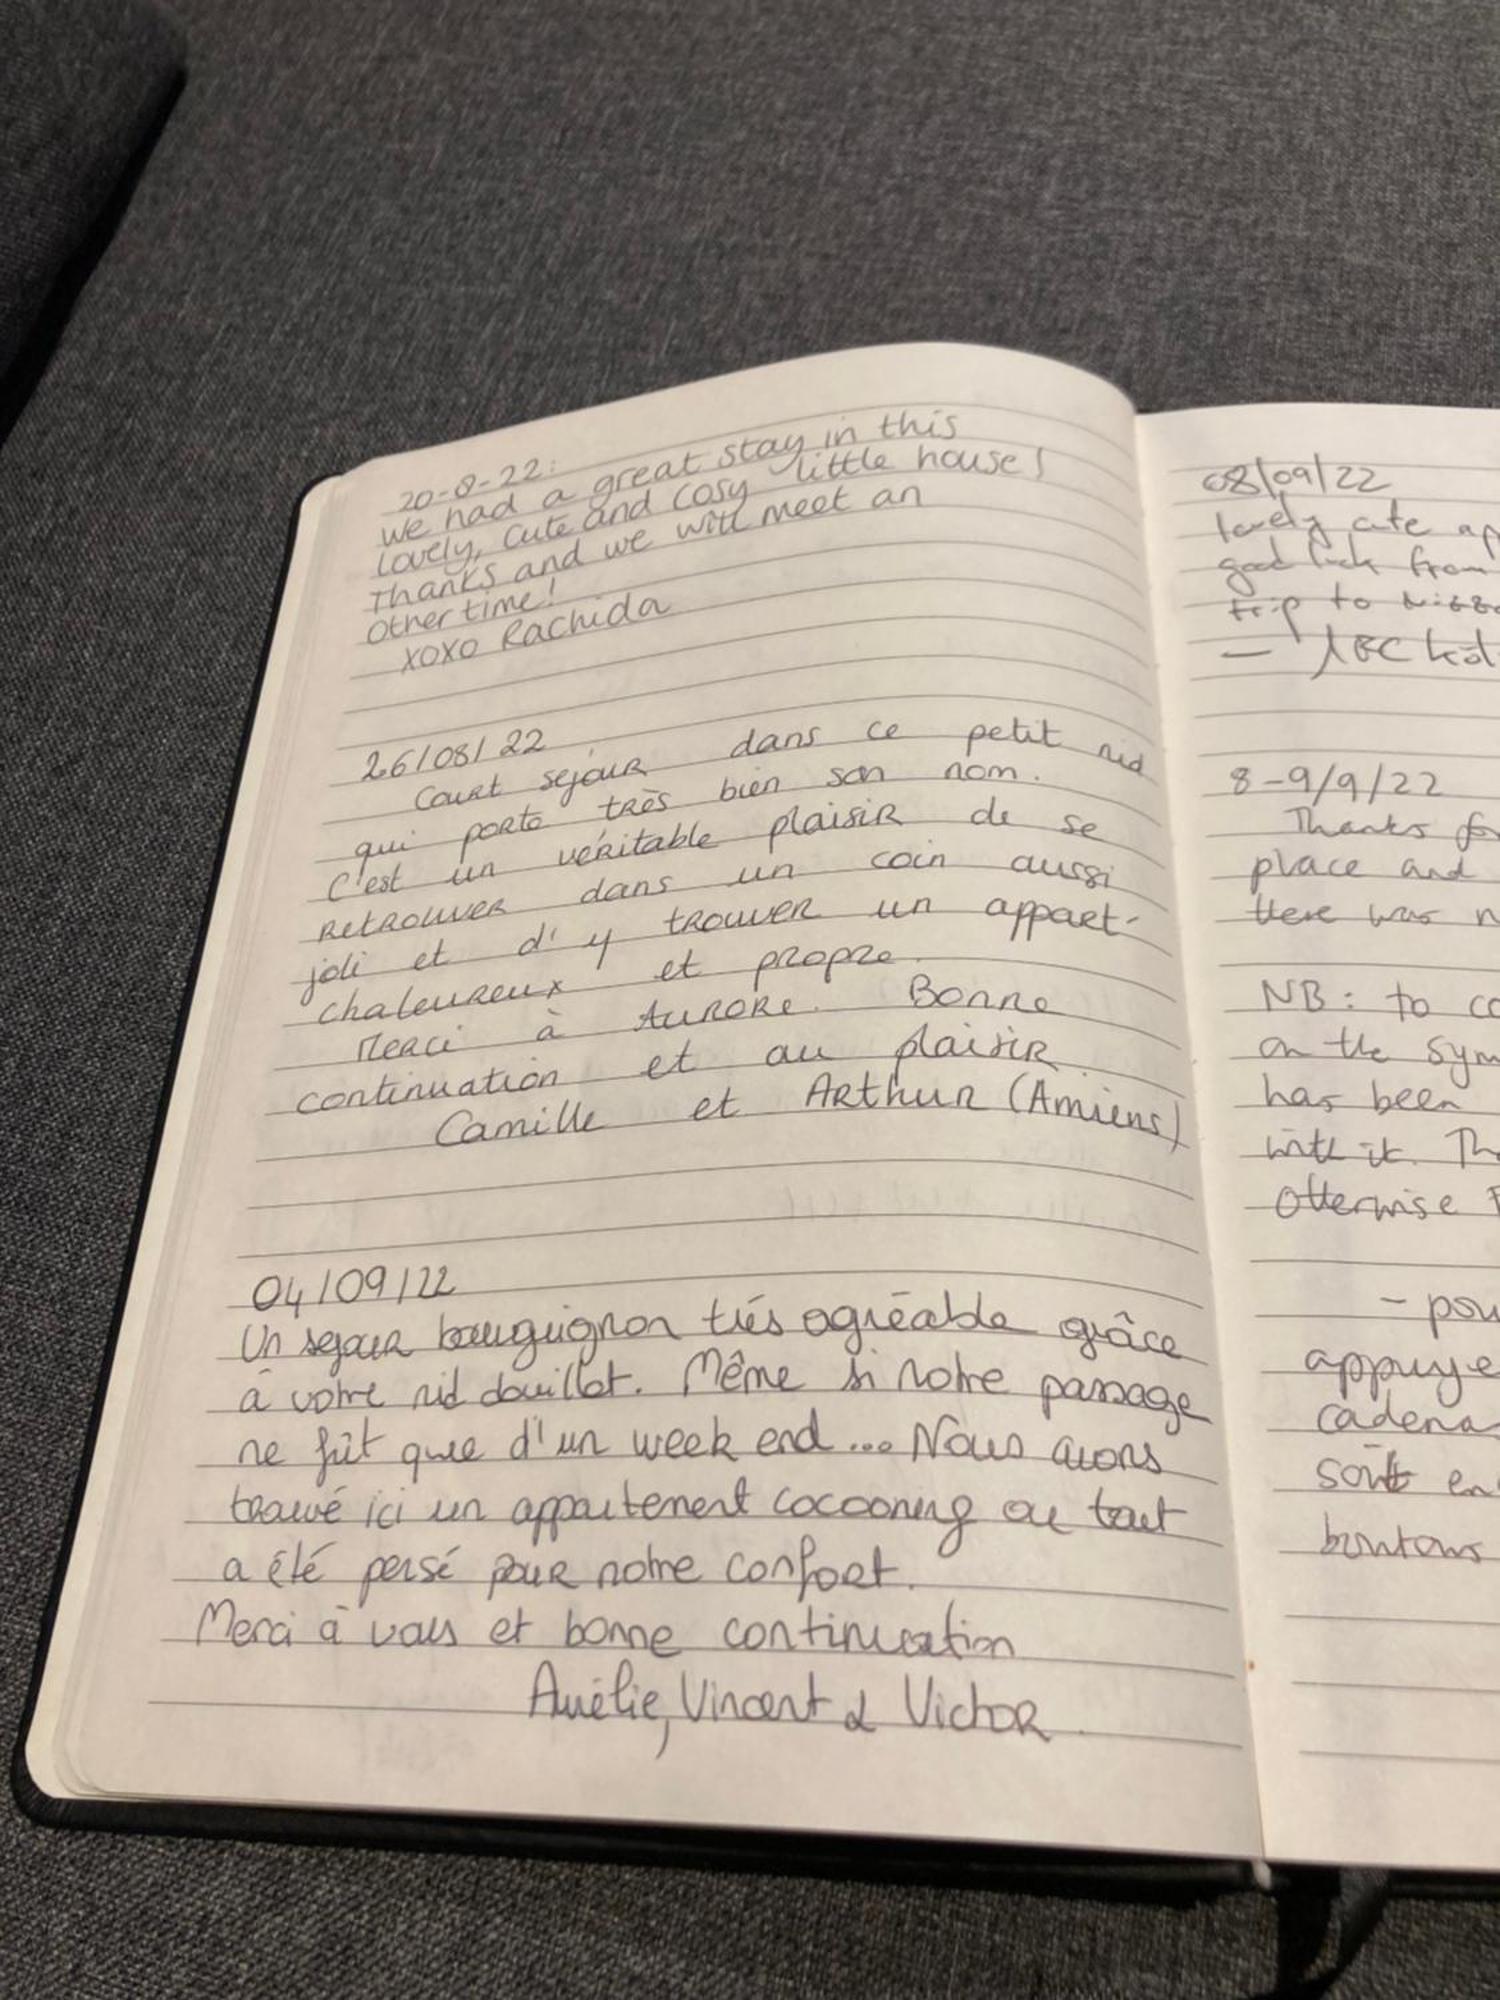 20-8-22:
we had a great stay in this
lovely, cute and cosy little house!
Thanks and we will meet an
other time!
xoxo Rachida
26/08/22
Court sejour dans ce petit nid
qui porte très bien son nom.
C'est un véritable plaisir de se
retrouver dans un coin aussi
joli et d'y trouver un appart-
chaleureux et propre.
Merci à Aurore. Bonne
continuation et au plaisir
Camille et Arthur (Amiens)
04/09/22
Un sejour bourguignon très agréable grâce
à votre nid douillet. Même si notre passage
ne fût que d'un week end... Nous avons
trouvé ici un appartement cocooning ou tout
a été pensé pour notre confort.
Merci à vous et bonne continuation
Aurélie, Vincent & Victor
08/09/22
lovely cute
good luck from
trip to
8-9/9/22
Thanks
place and
there was
NB: to
on the
has been
with it.
Otherwise
-
appuye
sont
boutons